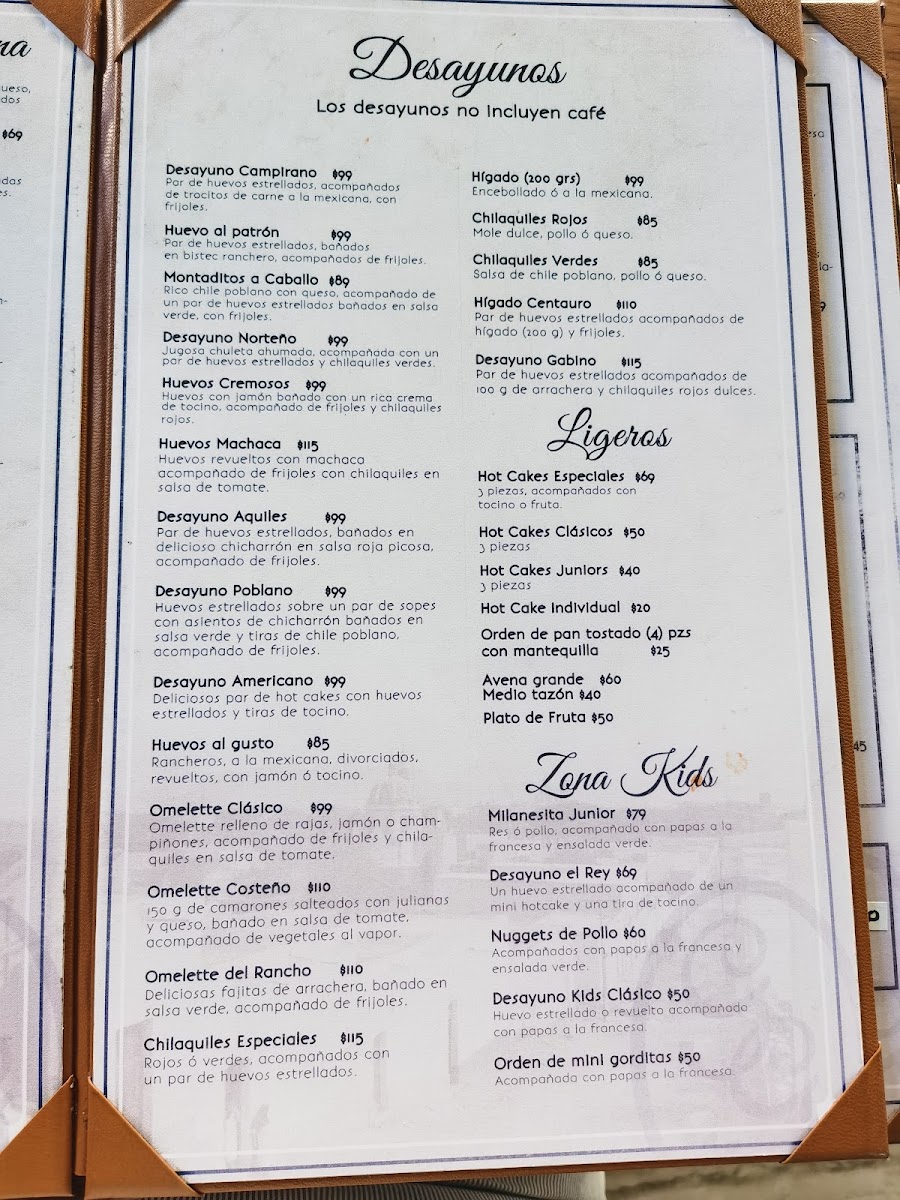 na
ueso,
dos
$69
das
es.
Desayunos
Los desayunos no incluyen café
Desayuno Campirano $99
Par de huevos estrellados, acompañados
de trocitos de carne a la mexicana, con
frijoles.
Huevo al patrón $99
Par de huevos estrellados, bañados
en bistec ranchero, acompañados de frijoles.
Montaditos a Caballo $89
Rico chile poblano con queso, acompañado de
un par de huevos estrellados bañados en salsa
verde, con frijoles.
Desayuno Norteño $99
Jugosa chuleta ahumada, acompañada con un
par de huevos estrellados y chilaquiles verdes.
Huevos Cremosos $99
Huevos con jamón bañado con un rica crema
de tocino, acompañado de frijoles y chilaquiles
rojos.
Huevos Machaca $115
Huevos revueltos con machaca
acompañado de frijoles con chilaquiles en
salsa de tomate.
Desayuno Aquiles $99
Par de huevos estrellados, bañados en
delicioso chicharrón en salsa roja picosa,
acompañado de frijoles.
Desayuno Poblano $99
Huevos estrellados sobre un par de sopes
con asientos de chicharrón bañados en
salsa verde y tiras de chile poblano,
acompañado de frijoles.
Desayuno Americano $99
Deliciosos par de hot cakes con huevos
estrellados y tiras de tocino.
Huevos al gusto $85
Rancheros, a la mexicana, divorciados,
revueltos, con jamón ó tocino.
Omelette Clásico $99
Omelette relleno de rajas, jamón o cham-
piñones, acompañado de frijoles y chila-
quiles en salsa de tomate.
Omelette Costeño $110
150 g de camarones salteados con julianas
y queso, bañado en salsa de tomate,
acompañado de vegetales al vapor.
Omelette del Rancho $110
Deliciosas fajitas de arrachera, bañado en
salsa verde, acompañado de frijoles.
Chilaquiles Especiales $115
Rojos ó verdes, acompañados con
un par de huevos estrellados.
Hígado (200 grs) $99
Encebollado ó a la mexicana.
Chilaquiles Rojos $85
Mole dulce, pollo ó queso.
Chilaquiles Verdes $85
Salsa de chile poblano, pollo ó queso.
Hígado Centauro $110
Par de huevos estrellados acompañados de
hígado (200 g) y frijoles.
Desayuno Gabino $115
Par de huevos estrellados acompañados de
100 g de arrachera y chilaquiles rojos dulces.
Ligeros
Hot Cakes Especiales $69
3 piezas, acompañados con
tocino o fruta.
Hot Cakes Clásicos $50
3 piezas
Hot Cakes Juniors $40
3 piezas
Hot Cake Individual $20
Orden de pan tostado (4) pzs
con mantequilla $25
Avena grande $60
Medio tazón $40
Plato de Fruta $50
Zona Kids
Milanesita Junior $79
Res ó pollo, acompañado con papas a la
francesa y ensalada verde.
Desayuno el Rey $69
Un huevo estrellado acompañado de un
mini hotcake y una tira de tocino.
Nuggets de Pollo $60
Acompañados con papas a la francesa y
ensalada verde.
Desayuno Kids Clásico $50
Huevo estrellado o revuelto acompañada
con papas a la francesa.
Orden de mini gorditas $50
Acompañada con papas a la francesa.
esa
la-
9
45